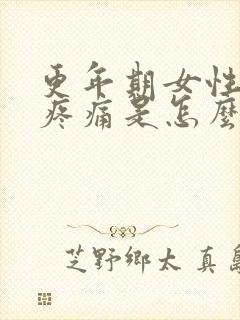 更年期女性
疼痛是怎麼
芝野鄉太 真島